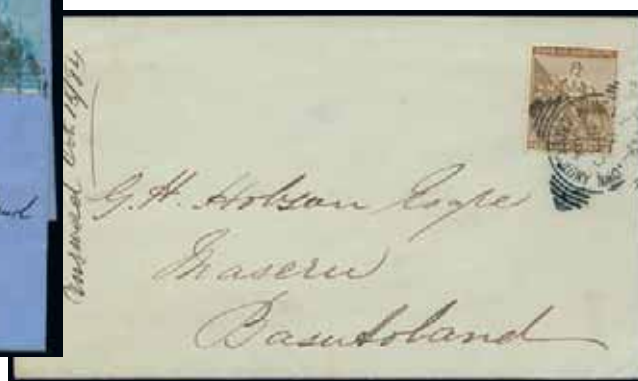 Answered Oct 14/84
G. H. Hobson Esqre
Maseru
Basutoland